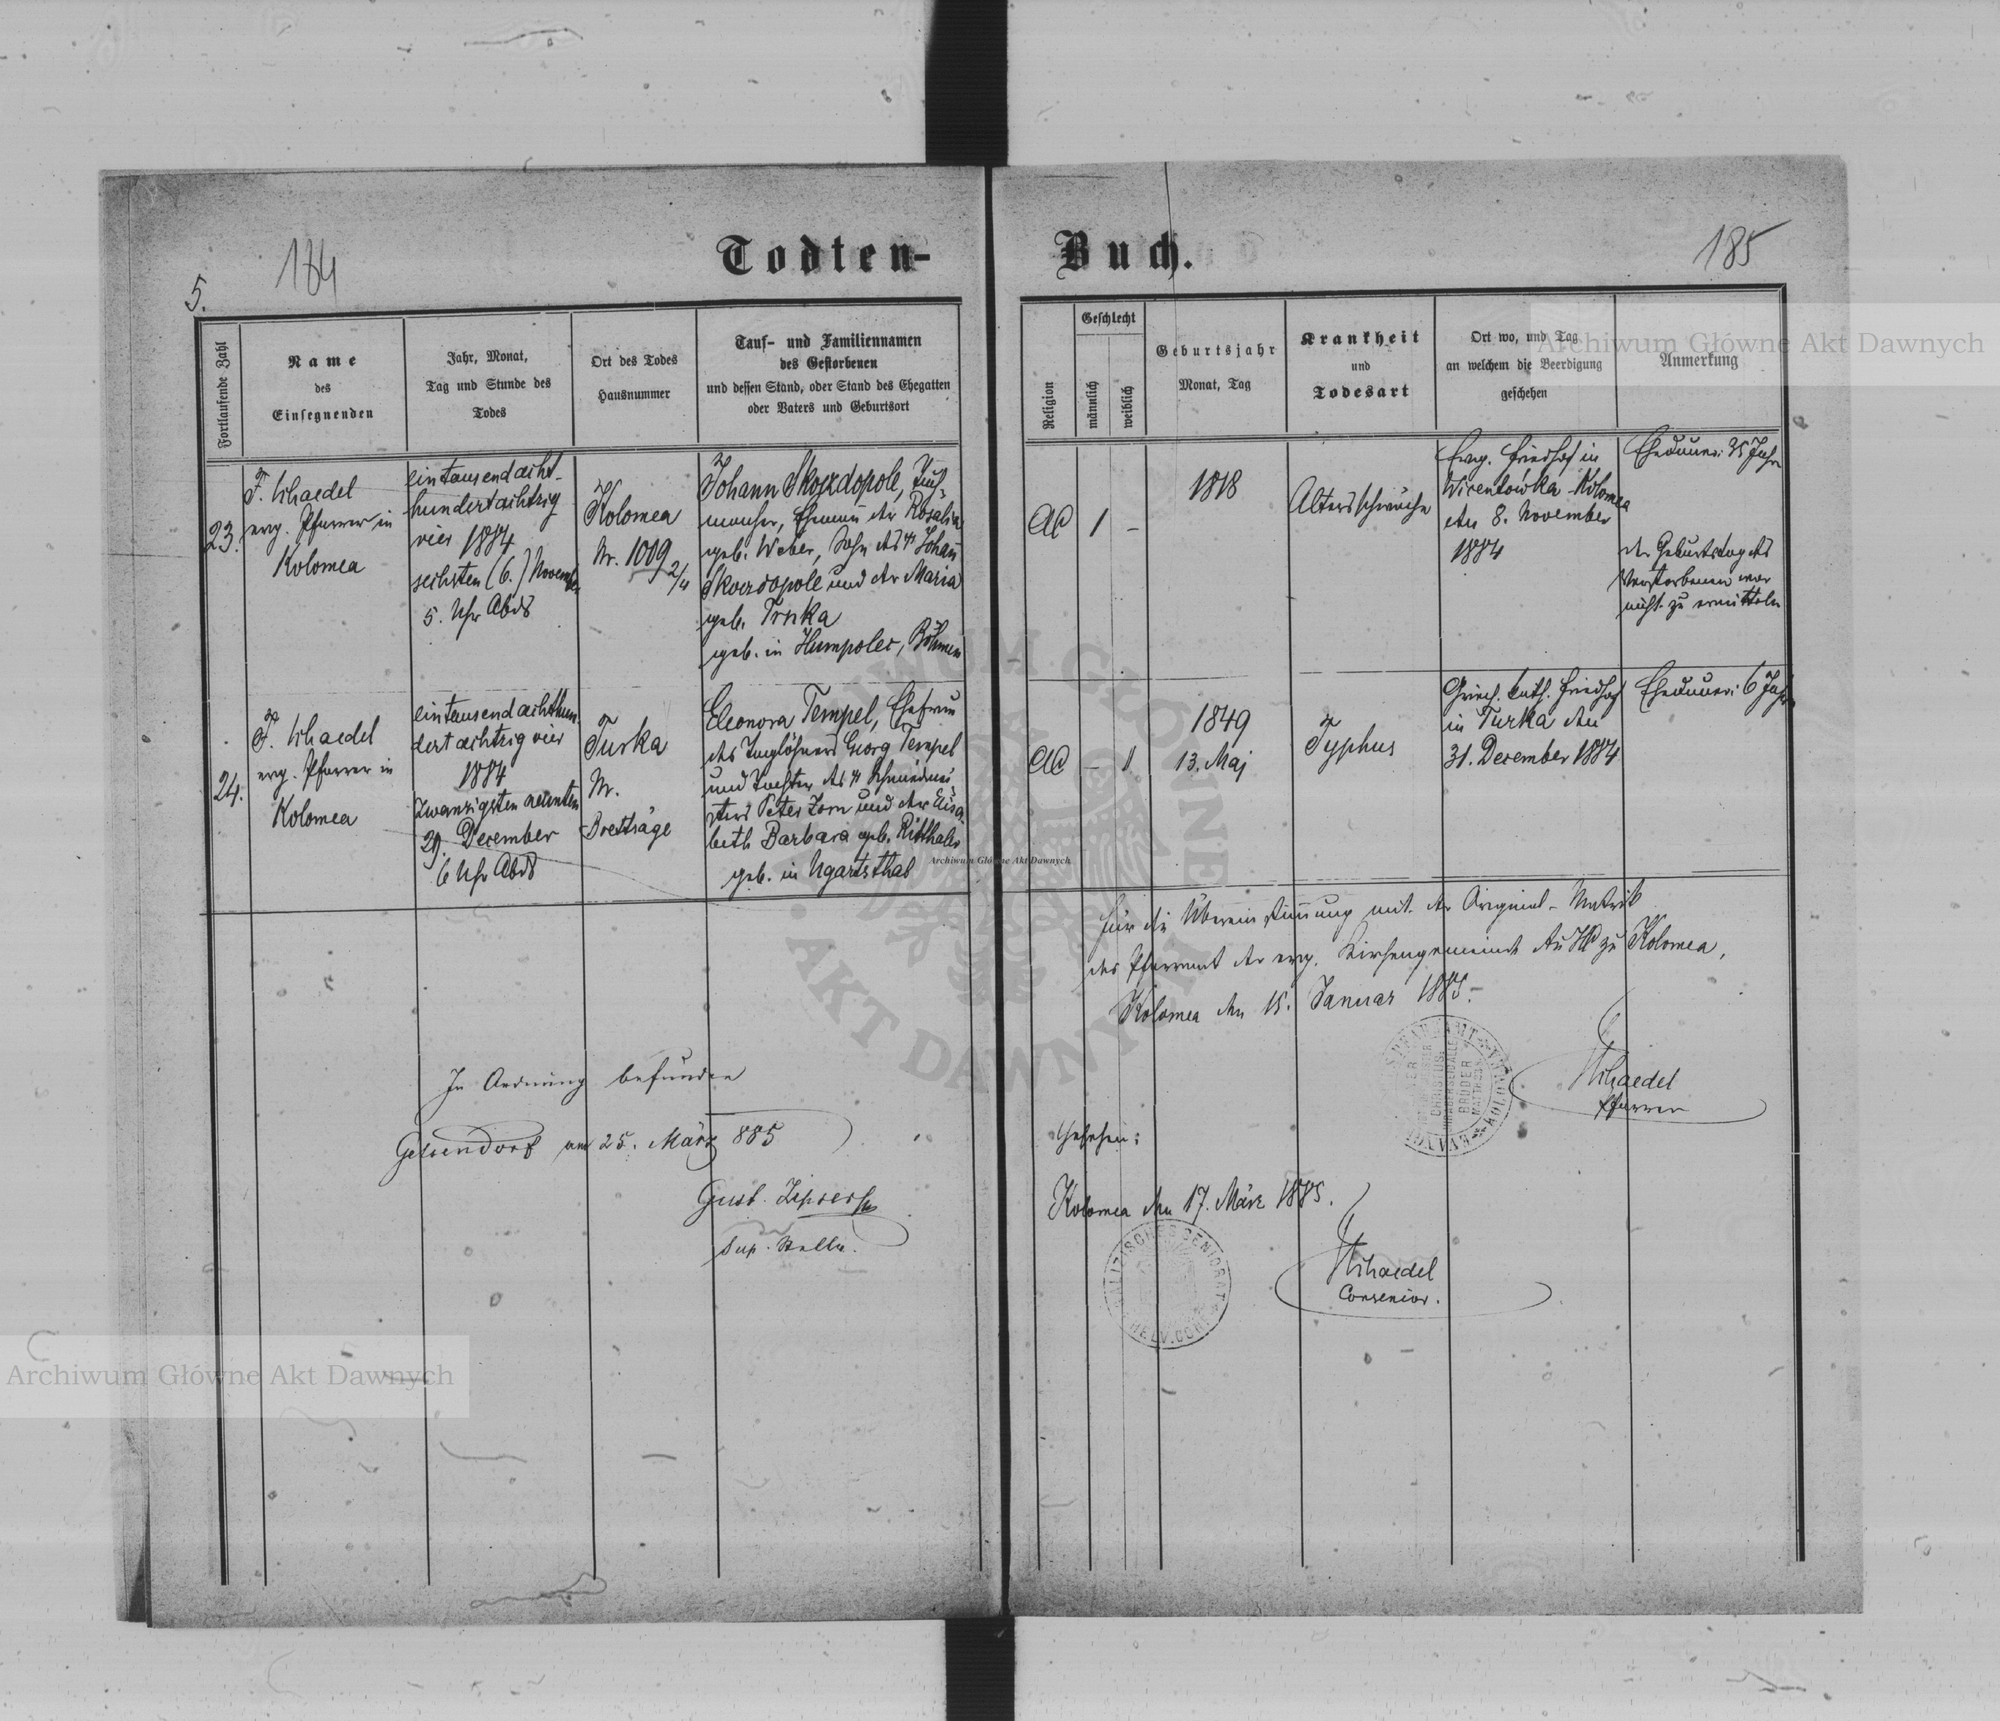 184
5.
Todten-
Fortlaufende Zahl
Name
des
Einsegnenden
Jahr, Monat,
Tag und Stunde des
Todes
Ort des Todes
Hausnummer
Tauf- und Familiennamen
des Gestorbenen
und dessen Stand, oder Stand des Ehegatten
oder Vaters und Geburtsort
23.
F. Schaedel
evg. Pfarrer in
Kolomea
eintausendacht-
hundertachtzig
vier 1884
sechsten (6.) November
5. Uhr Abds
Kolomea
Nr. 1009 2/4
Johann Skorzdopole, Tuch-
macher, Ehemann der Rosalia
geb. Weber, Sohn des † Johann
Skorzdopole und der Maria
geb. Trnka
geb. in Humpolec, Böhmen
24.
F. Schaedel
evg. Pfarrer in
Kolomea
eintausendachthun-
dertachtzig vier
1884
zwanzigsten neunten
29. December
6 Uhr Abds
Turka
Nr.
Brettsäge
Eleonora Tempel, Ehefrau
des Taglöhners Georg Tempel
und Tochter des † Schmiedmei-
sters Peter Zorn und der Elisa-
beth Barbara geb. Ritthaler
geb. in Ugartsthal
In Ordnung befunden
Gelsendorf am 25. März 885
Gust. Zipser
Sup. Stellv.
185
Buch.
Religion
Geschlecht
männlich
weiblich
Geburtsjahr
Monat, Tag
Krankheit
und
Todesart
Ort wo, und Tag
an welchem die Beerdigung
geschehen
Anmerkung
AC
1
-
1818
Altersschwäche
Evg. Friedhof in
Wicentówka-Kolomea
den 8. November
1884
Ehedauer: 35 Jahre
der Geburtstag des
Verstorbenen war
nicht zu ermitteln
AC
-
1
1849
13. Maj
Typhus
Griech. kath. Friedhof
in Turka den
31. December 1884
Ehedauer: 6 Jahre
Für die Übereinstimmung mit der Original-Matrik
das Pfarramt der evg. Kirchengemeinde AuHC zu Kolomea,
Kolomea den 15. Januar 1885.
Schaedel
Pfarrer
CHRISTUS
BRÜDER
Gesehen:
Kolomea den 17. März 1885.
GALIZISCHES SENIORAT
HELV. CONF.
Schaedel
Consenior.
Archiwum Główne Akt Dawnych
Archiwum Główne Akt Dawnych
Archiwum Główne Akt Dawnych
ARCHIWUM GŁÓWNE
AKT DAWNYCH